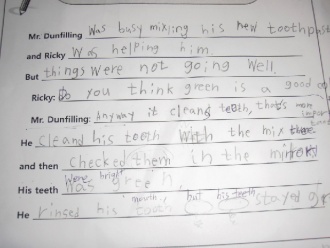 Mr. Dunfilling Was busy mixling his new toothpaste
and Ricky Was helping him.
But things were not going Well.
Ricky: Do you think green is a good
Mr. Dunfilling: Anyway it cleans teeth, that's more important
He cleand his teeth With the mixture
and then checked them in the mirror
His teeth were bright green,
He rinsed his mouth, but his teeth stayed gr